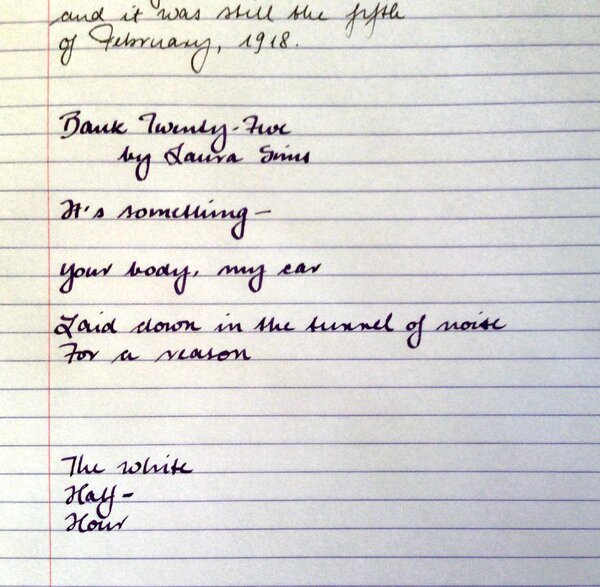 and it was still the fifth
of February, 1918.
Bank Twenty-Five
by Laura Sims
It's something—
Your body, my ear
Laid down in the tunnel of noise
For a reason
The white
Half-
Hour